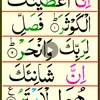 اِنَّاۤ اَعْطَيْنٰكَ
الْكَوْثَرَ ؕ فَصَلِّ
لِرَبِّكَ وَانْحَرْ ؕ
اِنَّ شَانِئَكَ
هُوَ الْاَبْتَرُ